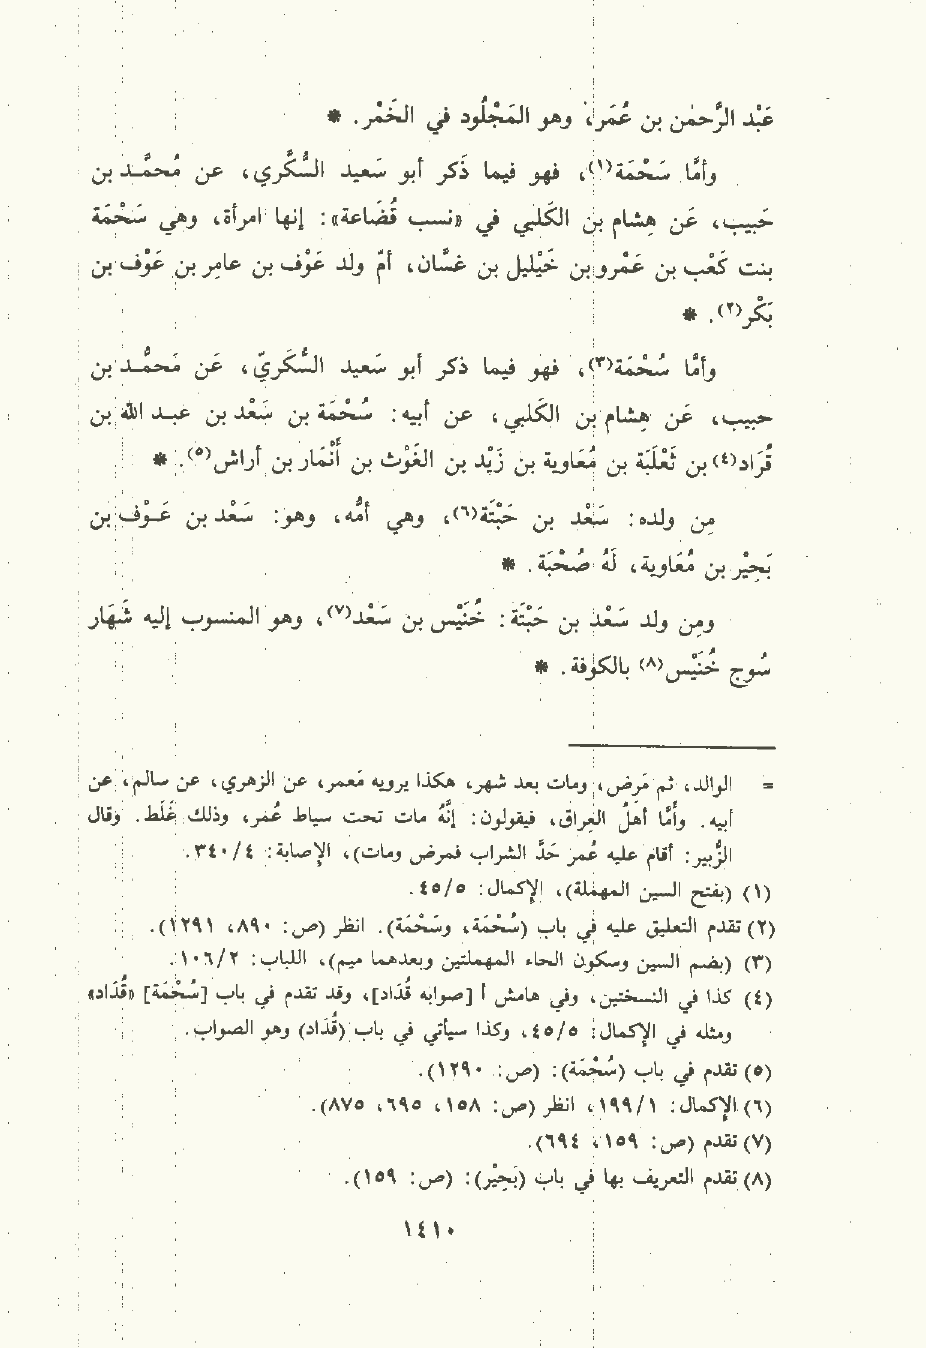 عَبْد الرَّحمٰن بن عُمَر، وهو المَجْلُود في الخَمْر. *
وأمَّا سَحْمَة(١)، فهو فيما ذَكر أبو سَعيد السُّكَّري، عن مُحمَّـد بن
حَبيب، عَن هِشام بن الكَلبي في «نسب قُضَاعة»: إنها امرأة، وهي سَحْمَة
بنت كَعْب بن عَمْرو بن خَيْليل بن غسَّان، أمّ ولد عَوْف بن عامِر بن عَوْف بن
بَكْر(٢). *
وأمَّا سُحْمَة(٣)، فهو فيما ذكر أبو سَعيد السُّكَريّ، عَن مَحمَّـد بن
حبيب، عَن هِشام بن الكَلبي، عن أبيه: سُحْمَة بن سَعْد بن عبـد الله بن
قُرَاد(٤) بن ثَعْلَبَة بن مُعَاوية بن زَيْد بن الغَوْث بن أَنْمَار بن أراش(٥). *
مِن ولده: سَعْد بن حَبْتَة(٦)، وهي أمُّه، وهو: سَعْد بن عَـوْف بن
بَحِيْر بن مُعَاوية، لَهُ صُحْبَة. *
ومِن ولد سَعْد بن حَبْتَة: خُنَيْس بن سَعْد(٧)، وهو المنسوب إليه شَهَار
سُوج خُنَيْس(٨) بالكوفة. *
= الوالد، ثم مَرِض، ومات بعد شهر، هكذا يرويه مَعمر، عن الزهري، عن سالم، عن
أبيه. وأمَّا أهلُ العِراق، فيقولون: إنَّهُ مات تحت سياط عُمَر، وذلك غَلَط. وقال
الزُّبير: أقام عليه عُمر حَدَّ الشراب فمرض ومات)، الإصابة: ٤/ ٣٤٠.
(١) (بفتح السين المهملة)، الإكمال: ٤٥/٥.
(٢) تقدم التعليق عليه في باب (سُحْمَة، وسَحْمَة). انظر (ص: ٨٩٠، ١٢٩١).
(٣) (بضم السين وسكون الحاء المهملتين وبعدهما ميم)، اللباب: ١٠٦/٢.
(٤) كذا في النسختين، وفي هامش أ [صوابه قُدَاد]، وقد تقدم في باب [سُحْمَة] «قُدَاد»
ومثله في الإكمال: ٤٥/٥، وكذا سيأتي في باب (قُدَاد) وهو الصواب.
(٥) تقدم في باب (سُحْمَة): (ص: ١٢٩٠).
(٦) الإكمال: ١٩٩/١، انظر (ص: ١٥٨، ٦٩٥، ٨٧٥).
(٧) تقدم (ص: ١٥٩، ٦٩٤).
(٨) تقدم التعريف بها في باب (بَحِيْر): (ص: ١٥٩).
١٤١٠